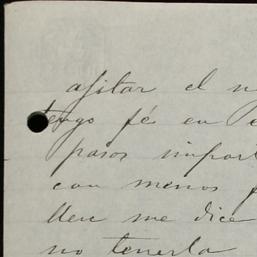 agitar el n
tengo fé en e
pasos import
con menos p
lleu me dice
no tenerla